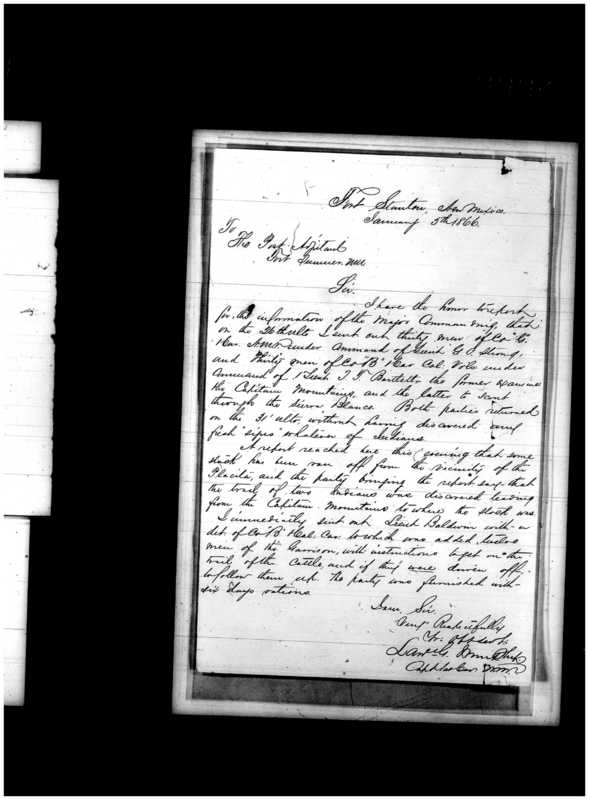 Fort Stanton, New Mexico
January 5th 1866.
To
The Post Adjutant
Fort Sumner. NM
Sir.
I have the honor to report
for the information of the Major Commanding, that
on the 26th ulto I sent out thirty men of Co
1 Cav. under Command of Lieut G. Strong,
and thirty men of Co "B" 1 Cav Cal. Vols under
Command of 1 Lieut T. F. Bartlett, the former examine
the Capitan Mountains, and the latter to scout
through the Sierra Blanca. Both parties returned
on the 31" ulto, without having discovered any
fresh "signs" whatever of Indians.
A report reached here this evening that some
stock has been ran off from the vicinity of the
Placita, and the party bringing the report says that
the trail of two Indians was discovered leading
from the Capitan Mountains to where the stock was
I immediately sent out Lieut Baldwin with a
det. of Co "B" 1 Cal. Cav. to which was added twelve
men of the Garrison, with instructions to get on the
trail of the Cattle, and if they were driven off,
to follow them up. The party was furnished with
six days rations
I am, Sir,
Very Respectfully
Yr. Obt Servt.